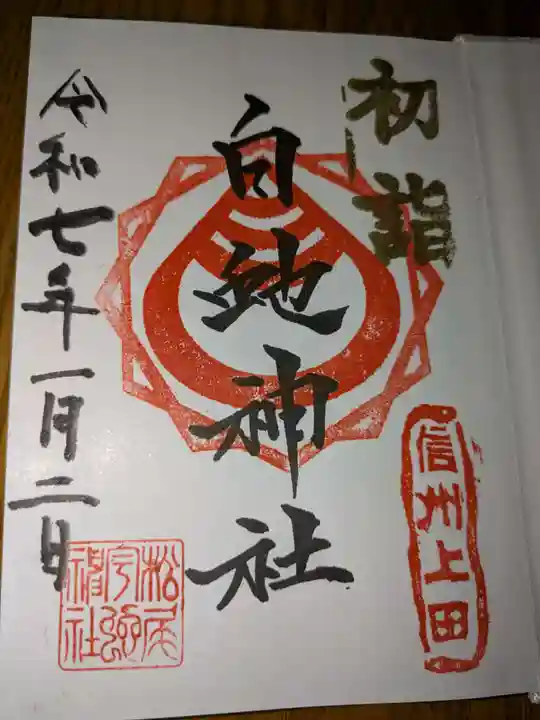 初詣
信州上田
白地神社
令和七年一月二日
松尾宇
社